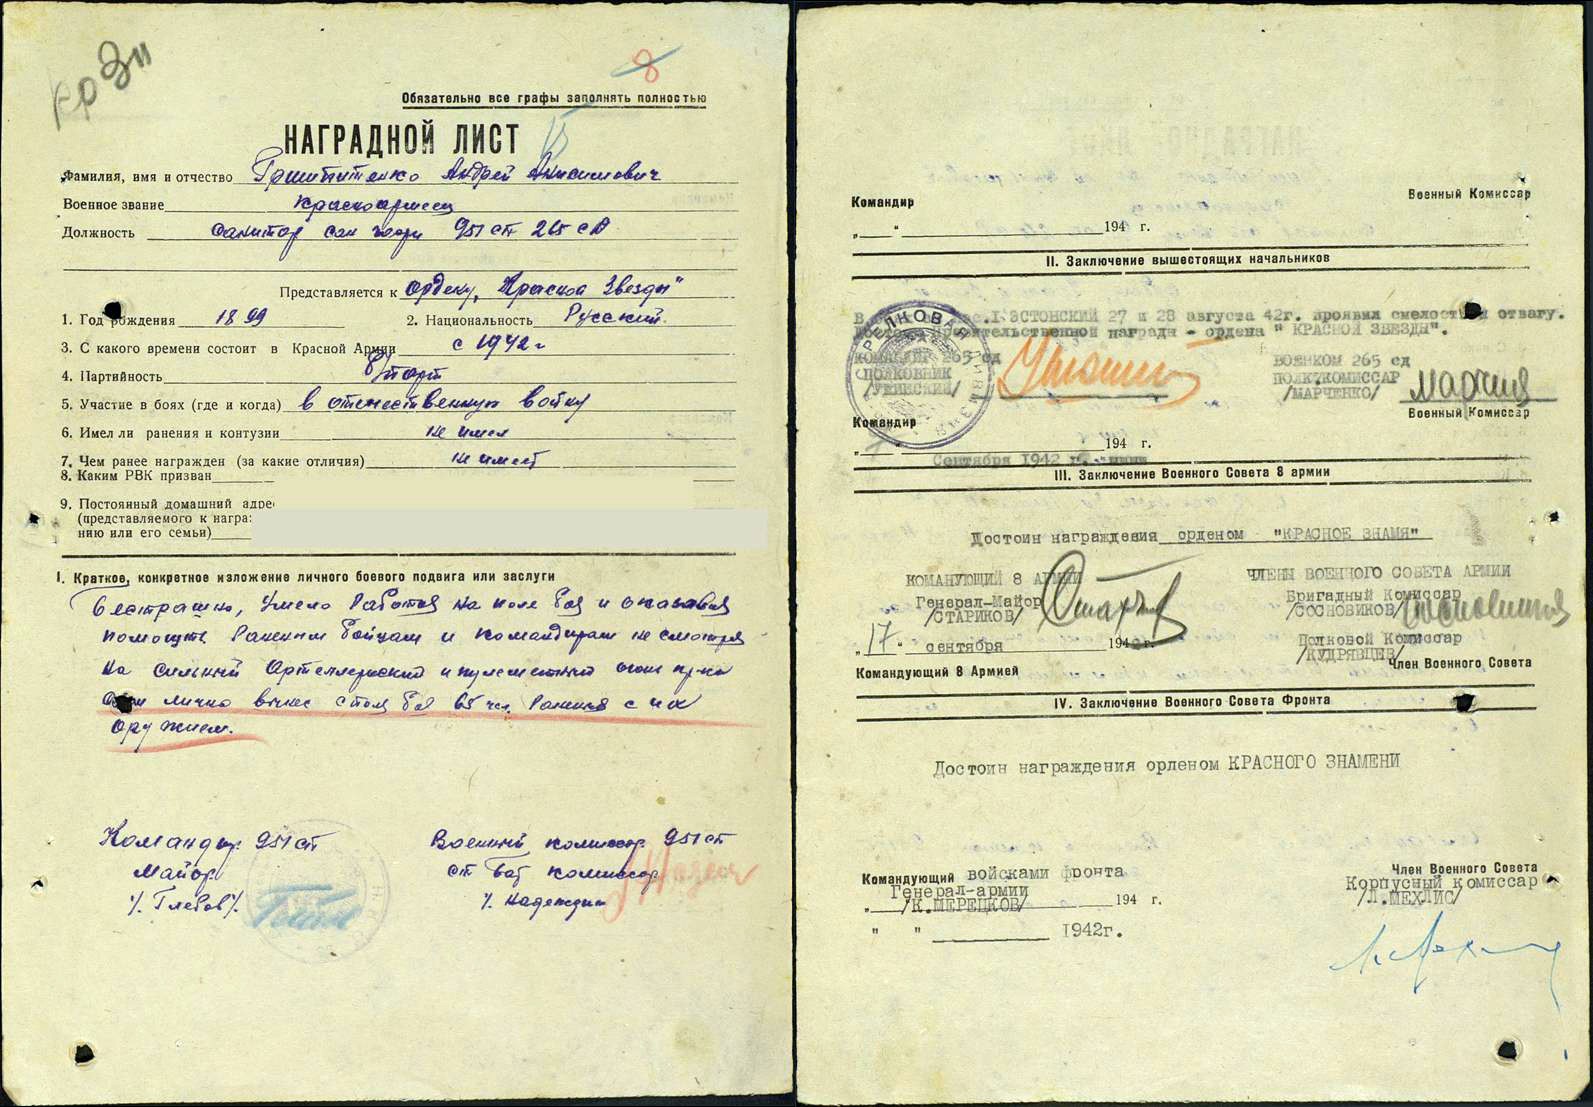 Кр Зн
8
Обязательно все графы заполнять полностью
НАГРАДНОЙ ЛИСТ
Фамилия, имя и отчество Андрей Анисимович
Военное звание Красноармеец
Должность Санитар сан части 951 сп 265 сд
Представляется к ордену „Красная Звезда"
1. Год рождения 1899 2. Национальность Русский
3. С какого времени состоит в Красной Армии с 1942 г
4. Партийность б/парт
5. Участие в боях (где и когда) в отечественную войну
6. Имел ли ранения и контузии не имел
7. Чем ранее награжден (за какие отличия) не имеет
8. Каким РВК призван
9. Постоянный домашний адрес
(представляемого к награ:
нию или его семьи)
I. Краткое, конкретное изложение личного боевого подвига или заслуги
Бестрашно, умело работая на поле боя и оказывая
помощь раненым бойцам и командирам не смотря
на сильный Артеллерийский и пулеметный огонь
лично вынес с поля боя 65 чел. раненых с их
оружием.
Командир 951 сп
Майор
/. Глебов/.
Военный комиссар 951 сп
ст бат комиссар
/. Надеждин
Командир
Военный Комиссар
„ " 194 г.
II. Заключение вышестоящих начальников
В I ЭСТОНСКИЙ 27 и 28 августа 42г. проявил смелость и отвагу.
Правительственной награды - ордена " КРАСНОЙ ЗВЕЗДЫ".
СТРЕЛКОВАЯ ДИВИЗИЯ
КОМАНДИР 265 сд
ПОЛКОВНИК
/УШИНСКИЙ/
ВОЕНКОМ 265 сд
ПОЛК.КОМИССАР
/МАРЧЕНКО/
Командир
Военный Комиссар
„ " 194 г.
Сентября 1942 г.
III. Заключение Военного Совета 8 армии
Достоин награждения орденом "КРАСНОЕ ЗНАМЯ"
КОМАНУЮЩИЙ 8 АРМИИ
Генерал-Майор
/СТАРИКОВ/
ЧЛЕНЫ ВОЕННОГО СОВЕТА АРМИИ
Бригадный Комиссар
/СОСНОВИКОВ/
„17" сентября 1942 г.
Полковой Комиссар
/КУДРЯВЦЕВ/
Командующий 8 Армией
Член Военного Совета
IV. Заключение Военного Совета Фронта
Достоин награждения орденом КРАСНОГО ЗНАМЕНИ
Командующий войсками фронта
Генерал-армии
/К.МЕРЕЦКОВ/
„ " 194 г.
Член Военного Совета
Корпусный комиссар
/Л.МЕХЛИС/
" " 1942г.